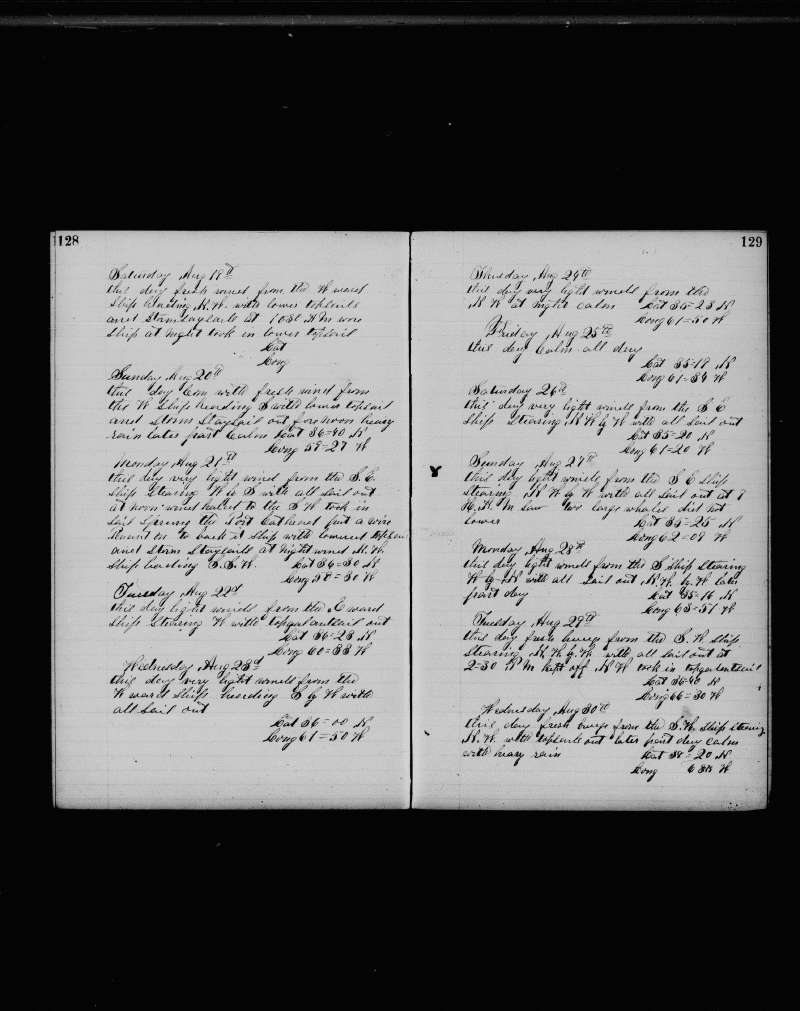 128
Saturday Aug 19th
this day fresh wind from the W ward
Ship heading N.W. with lower topsails
and Stormstaysails at 1030 A M wore
Ship at night took in lower topsail
Lat
Long
Sunday Aug 20th
this day Com with fresh wind from
the W Ship heading S with lower topsail
and Storm Staysail out forenoon heavy
rain later part Calm Lat 36=40 N
Long 59=27 W
Monday Aug 21st
this day very light wind from the S.E.
Ship Stearing W by S with all sail out
at noon wind haled to the S W took in
Sail Sprung the Port Cathead put a wire
to back it Ship with lowered topsail
and Storm Staysails at night wind N.W.
Ship heading S.S.W. Lat 36=30 N
Long 58=30 W
Tuesday Aug 22d
this day light winds from the E ward
Ship Stearing W with topgalantsail out
Lat 36=28 N
Long 60=33 W
Wednesday Aug 23d
this day very light winds from the
W ward Ship heading S by W with
all Sail out
Lat 36=00 N
Long 61=50 W
129
Thursday Aug 24th
this day very light winds from the
N W at night calm Lat 35=28 N
Long 61=50 W
Friday Aug 25th
this day Calm all day
Lat 35=19 N
Long 61=34 W
Saturday 26th
this day very light winds from the S E
Ship Stearing N W by W with all Sail out
Lat 35=20 N
Long 61=20 W
Sunday Aug 27th
this day light winds from the S E Ship
Stearing N W by W with all Sail out at 7
A.M Saw two large whales did not
Lower Lat 35=25 N
Long 62=09 W
Monday Aug 28th
this day light winds from the S Ship Stearing
W by N with all Sail out N.W. by W later
part day Lat 35=16 N
Long 63=51 W
Tuesday Aug 29th
this day fresh breeze from the S.W. Ship
Stearing N.W. by W. with all Sail out at
2=30 P M kept off N.W. took in topgalantsail
Lat 36=40 N
Long 66=30 W
Wednesday Aug 30th
this day fresh breeze from the S.W. Ship stearing
N.W. with topsails out later part day calm
with heavy rain Lat 38=20 N
Long W